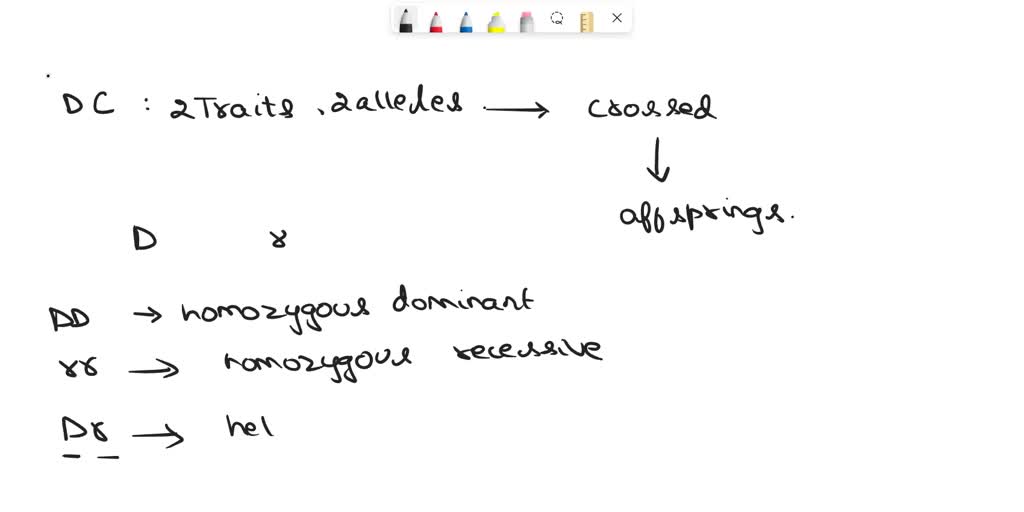 DC : 2 Traits , 2 alleles . → crossed
↓
offsprings.
D r
DD → homozygous dominant
rr → homozygous recessive
Dr → hel